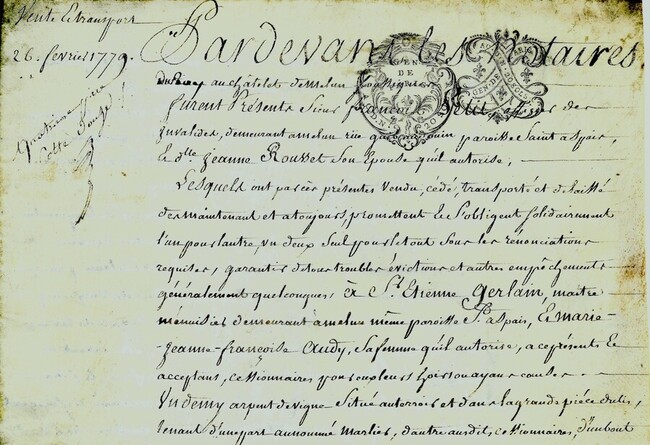 Vente Et transport
26. fevrier 1779.
Pardevant les Notaires
du Roy au châtelet de melun soussignés
furent Présents Sieur françois Petit, des
Invalides, demeurant amelun rüe paroisse Saint aspais,
Et dlle Jeanne Rousset Son Epouse quil autorise,
Lesquels ont par ces présentes Vendu, cédé, transporté et delaissé
des maintenant et atoujours, promettent Et S'obligent Solidairement
l'un pour lautre, un deux Seul pour le tout Sous les rénonciations
requises, garantir de tous troubles évictions et autres empêchements
généralement quelconques, à Sr. Etienne Gerlain, maitre
ménuisier demeurant amelun même paroisse St. aspais, & marie-
jeanne-françoise Audy, Sa femme quil autorise, a ce présents Et
acceptans, cessionnaires pour eux leurs hoirs ou ayans causes
Un demy arpent de vigne Situé au terroir et dans la grande pièce
tenant d'une part au nommé Marlies, d'autre ausdit, cessionnaires d'un bout